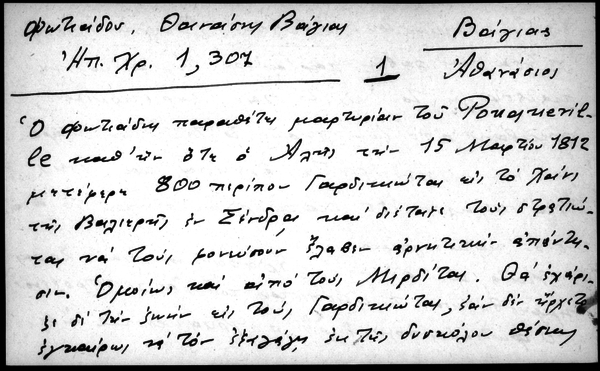 Φωτιάδου, Θανάσης Βάγιας
Βάγιας
Ἠπ. Χρ. 1, 307
1
Ἀθανάσιος
Ὁ Φωτιάδης παραθέτει μαρτυρίαν τοῦ Poukevil-
le καθ' ἣν ὅτε ὁ Ἀλῆς τὴν 15 Μαρτίου 1812
μετέφερε 800 περίπου Γαρδικιώτας εἰς τὸ Χάνι
τῆς Βαλιαρῆς ἐν Σένδρα καὶ διέταξε τοὺς στρατιώ-
τας νὰ τοὺς φονεύσουν ἔλαβεν ἀρνητικὴν ἀπάντη-
σιν. Ὁμοίως καὶ ἀπὸ τοὺς Μιρδίτας. Θὰ ἐχάρι-
ζε δὲ τὴν ζωὴν εἰς τοὺς Γαρδικιώτας, ἐὰν δὲν ἤρχετο
ἐγκαίρως νὰ τὸν ἐξαγάγῃ ἐκ τῆς δυσκόλου θέσεως